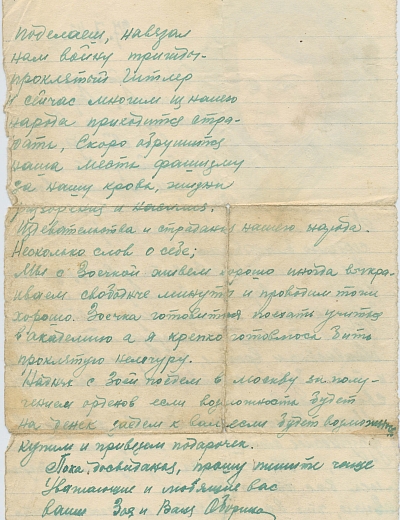 поделаем, навязал
нам войну трижды-
проклятый Гитлер
и сейчас многим из нашего
народа приходится стра-
дать, Скоро обрушится
наша месть фашизму
за нашу кровь, жизни
разорения и
Издевательства и страдания нашего народа.
Несколько слов о себе;
Мы с Зоечкой живем хорошо иногда выкра-
иваем свободные минуты и проводим их
хорошо. Зоечка готовится поехать учится
в академию а я крепко готовлюсь бить
проклятую немчуру.
На днях с Зоей поедем в Москву за полу-
чением орденов если возможность будет
на денек заедем к вам, если будет возможно
купим и привезем подарочек.
Пока, досвидания, прошу пишите чаще
Уважающие и любящие вас
ваши Зоя и Ваня